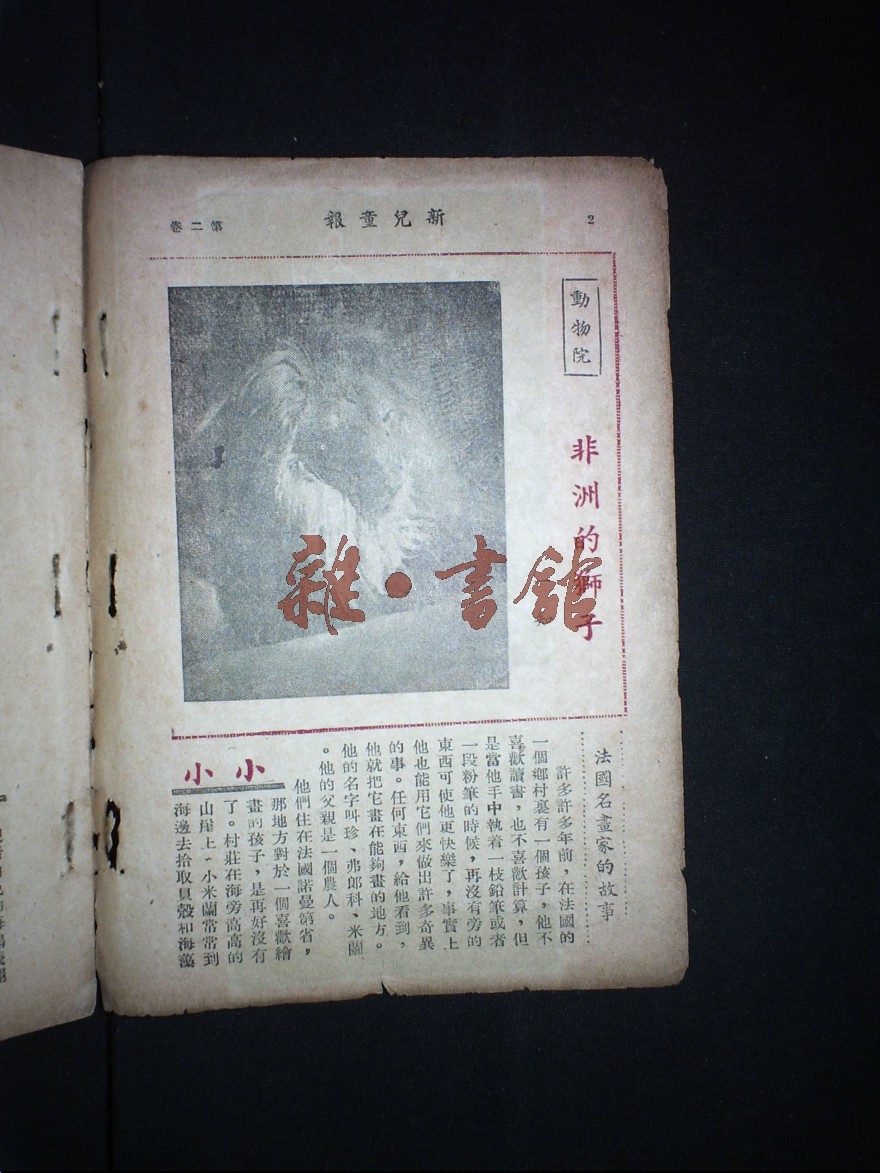 2
新兒童報
第二卷
動物院
非洲的獅子
雜·書館
法國名畫家的故事
許多許多年前，在法國的
一個鄉村裏有一個孩子，他不
喜歡讀書，也不喜歡計算，但
是當他手中執着一枝鉛筆或者
一段粉筆的時候，再沒有旁的
東西可使他更快樂了，事實上
他也能用它們來做出許多奇異
的事。任何東西，給他看到，
他就把它畫在能夠畫的地方。
他的名字叫珍、弗郎科、米蘭
。他的父親是一個農人。
他們住在法國諾曼第省，
那地方對於一個喜歡繪
畫的孩子，是再好沒有
了。村莊在海旁高高的
山崖上，小米蘭常常到
海邊去拾取貝殼和海藻
小小